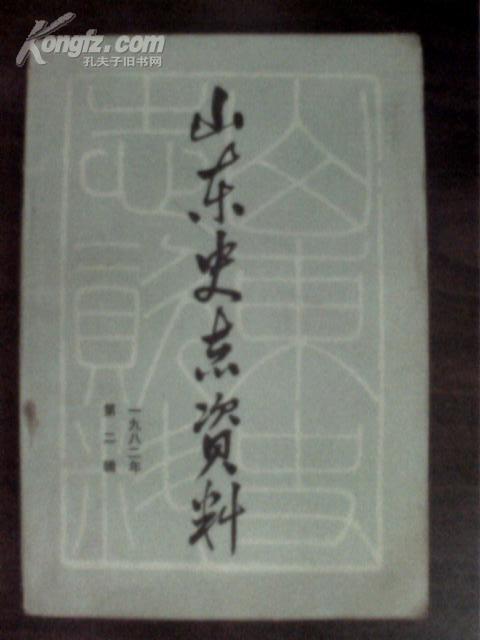 Kongfz.com
孔夫子旧书网
山东史志资料
一九八二年
第二辑
山东史
志资料